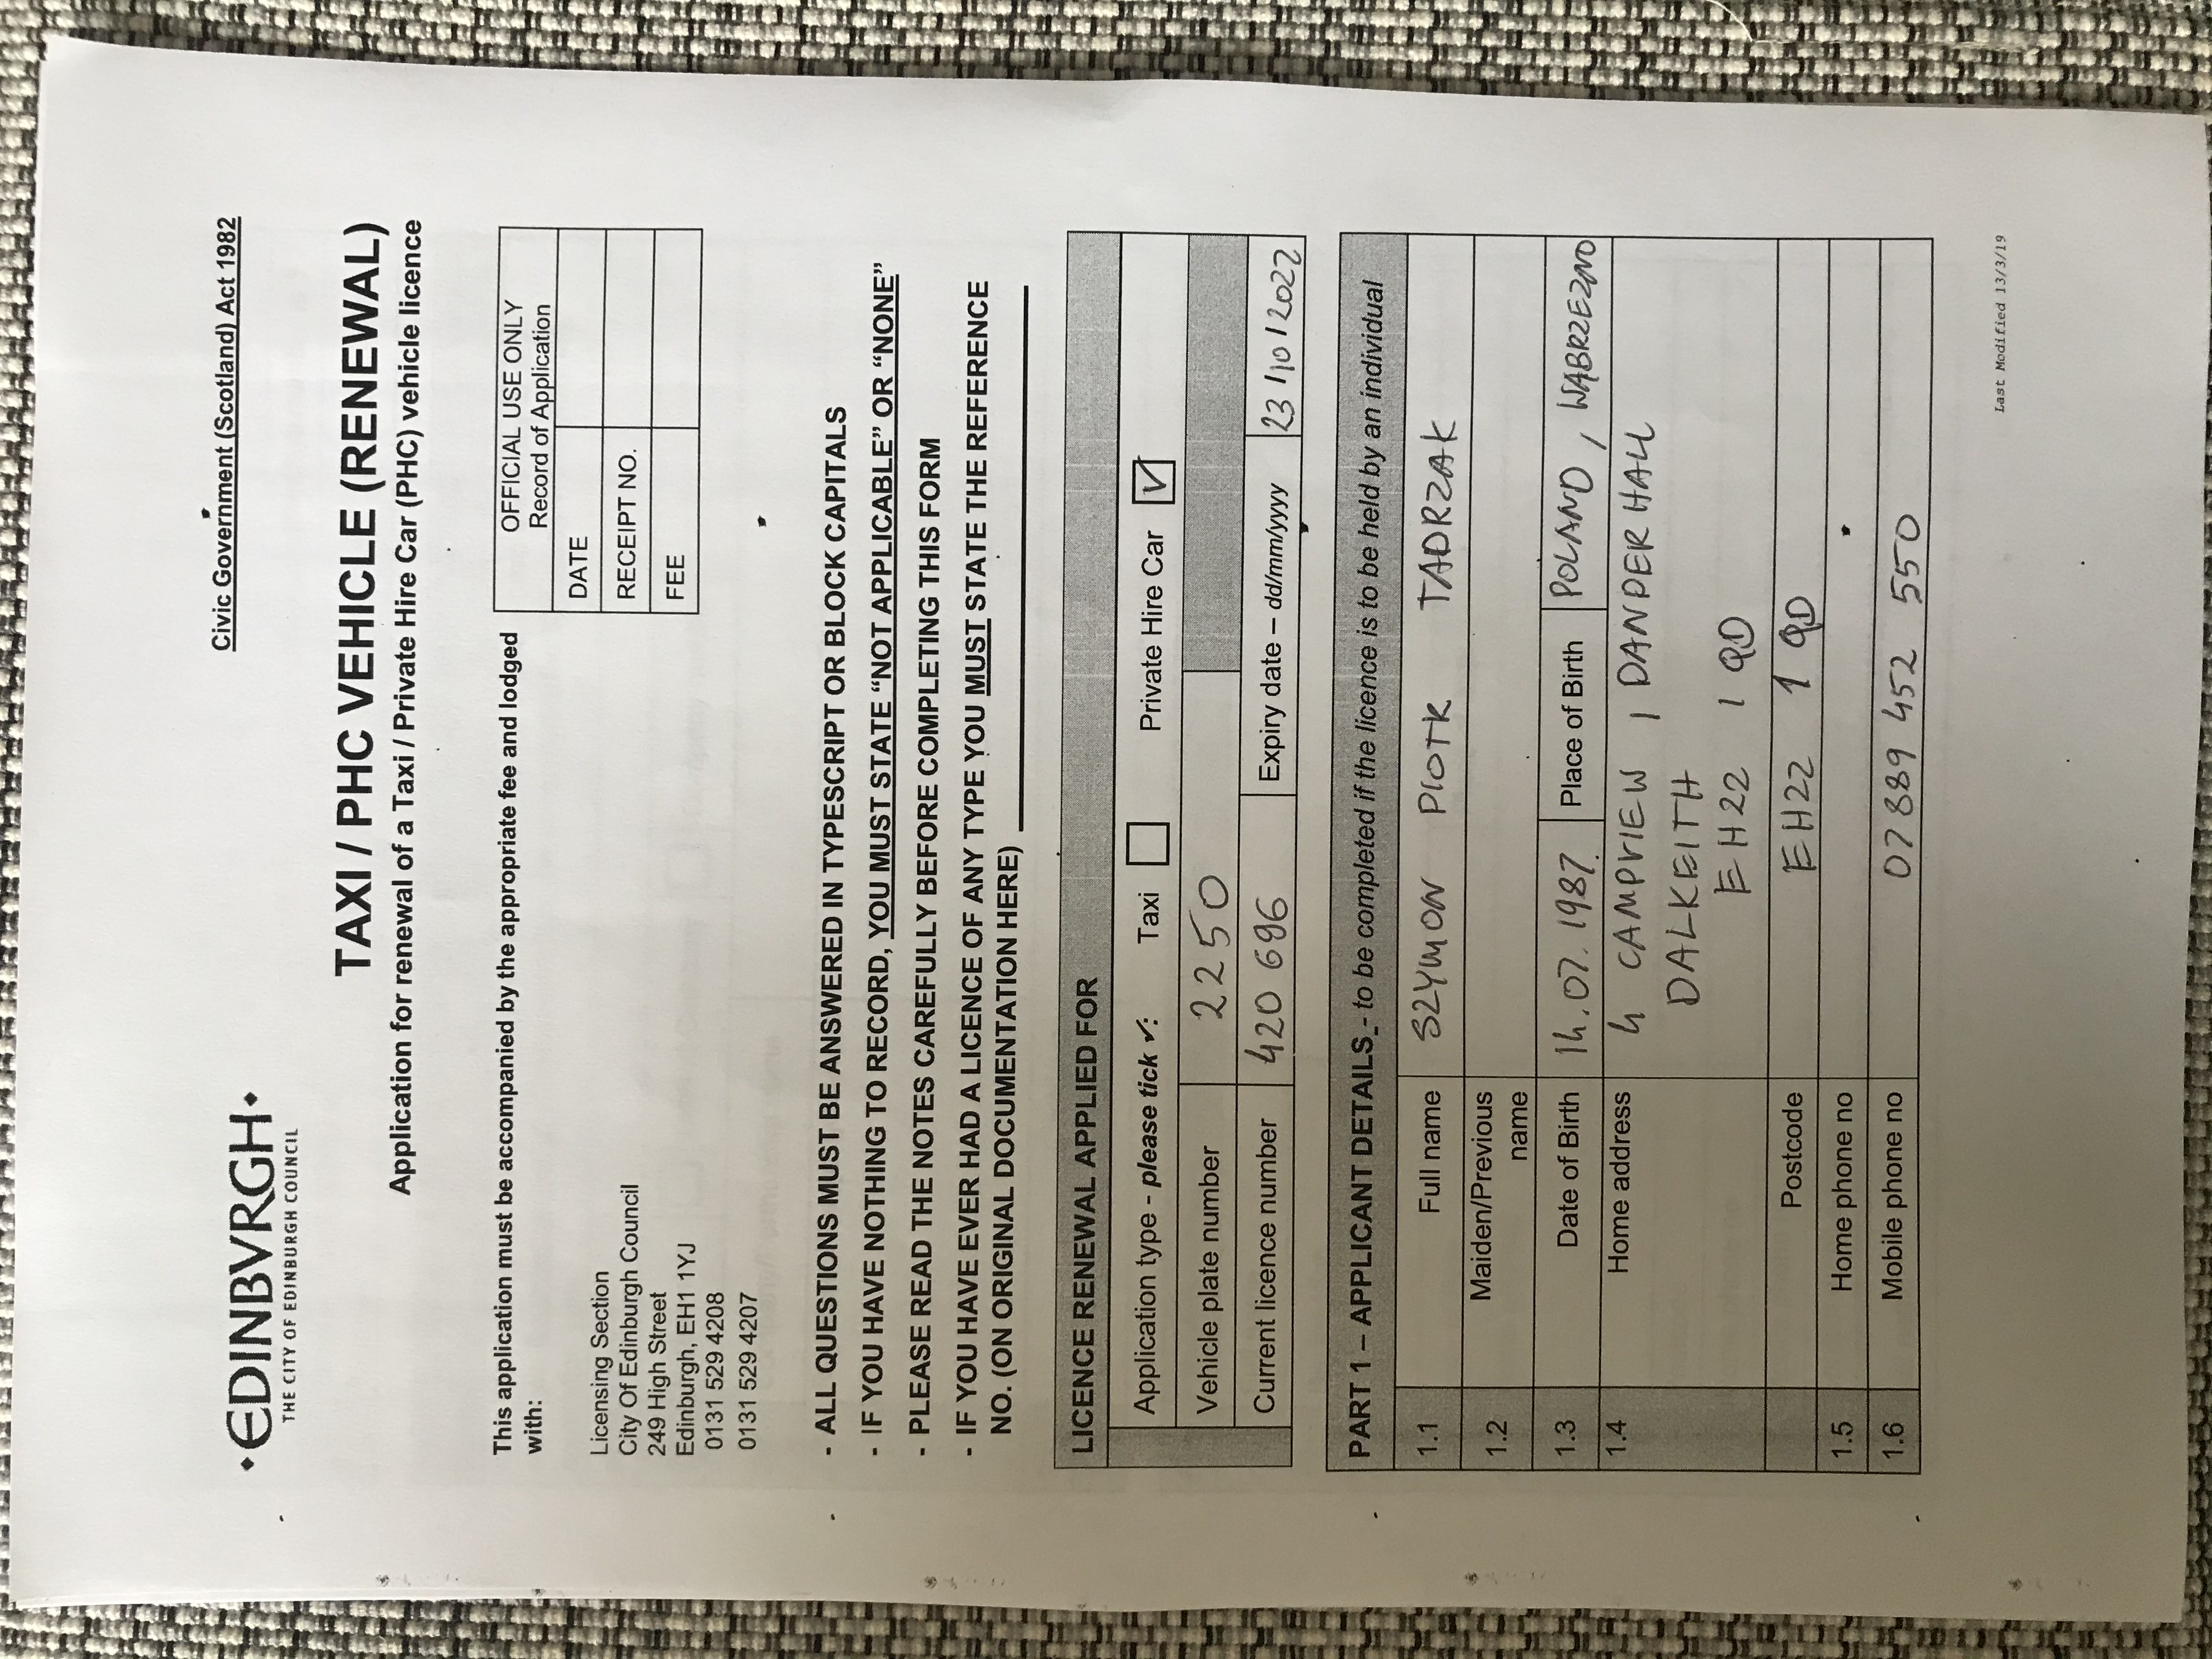 Civic Government (Scotland) Act 1982
·EDINBVRGH·
THE CITY OF EDINBURGH COUNCIL
TAXI / PHC VEHICLE (RENEWAL)
Application for renewal of a Taxi / Private Hire Car (PHC) vehicle licence
This application must be accompanied by the appropriate fee and lodged
with:
Licensing Section
City Of Edinburgh Council
249 High Street
Edinburgh, EH1 1YJ
0131 529 4208
0131 529 4207
OFFICIAL USE ONLY
Record of Application
DATE
RECEIPT NO.
FEE
- ALL QUESTIONS MUST BE ANSWERED IN TYPESCRIPT OR BLOCK CAPITALS
- IF YOU HAVE NOTHING TO RECORD, YOU MUST STATE “NOT APPLICABLE” OR “NONE”
- PLEASE READ THE NOTES CAREFULLY BEFORE COMPLETING THIS FORM
- IF YOU HAVE EVER HAD A LICENCE OF ANY TYPE YOU MUST STATE THE REFERENCE
NO. (ON ORIGINAL DOCUMENTATION HERE)
LICENCE RENEWAL APPLIED FOR
Application type - please tick ✓: Taxi Private Hire Car ✓
Vehicle plate number 2250
Current licence number 420 696 Expiry date – dd/mm/yyyy 23/10/2022
PART 1 – APPLICANT DETAILS - to be completed if the licence is to be held by an individual
1.1 Full name SZYMON PIOTR TADRZAK
1.2 Maiden/Previous
name
1.3 Date of Birth 14.07.1987. Place of Birth POLAND, WĄBRZEZNO
1.4 Home address 4 CAMPVIEW, DANDERHALL
DALKEITH
EH22 1QD
Postcode EH22 1QD
1.5 Home phone no
1.6 Mobile phone no 07889 452 550
Last Modified 13/3/19